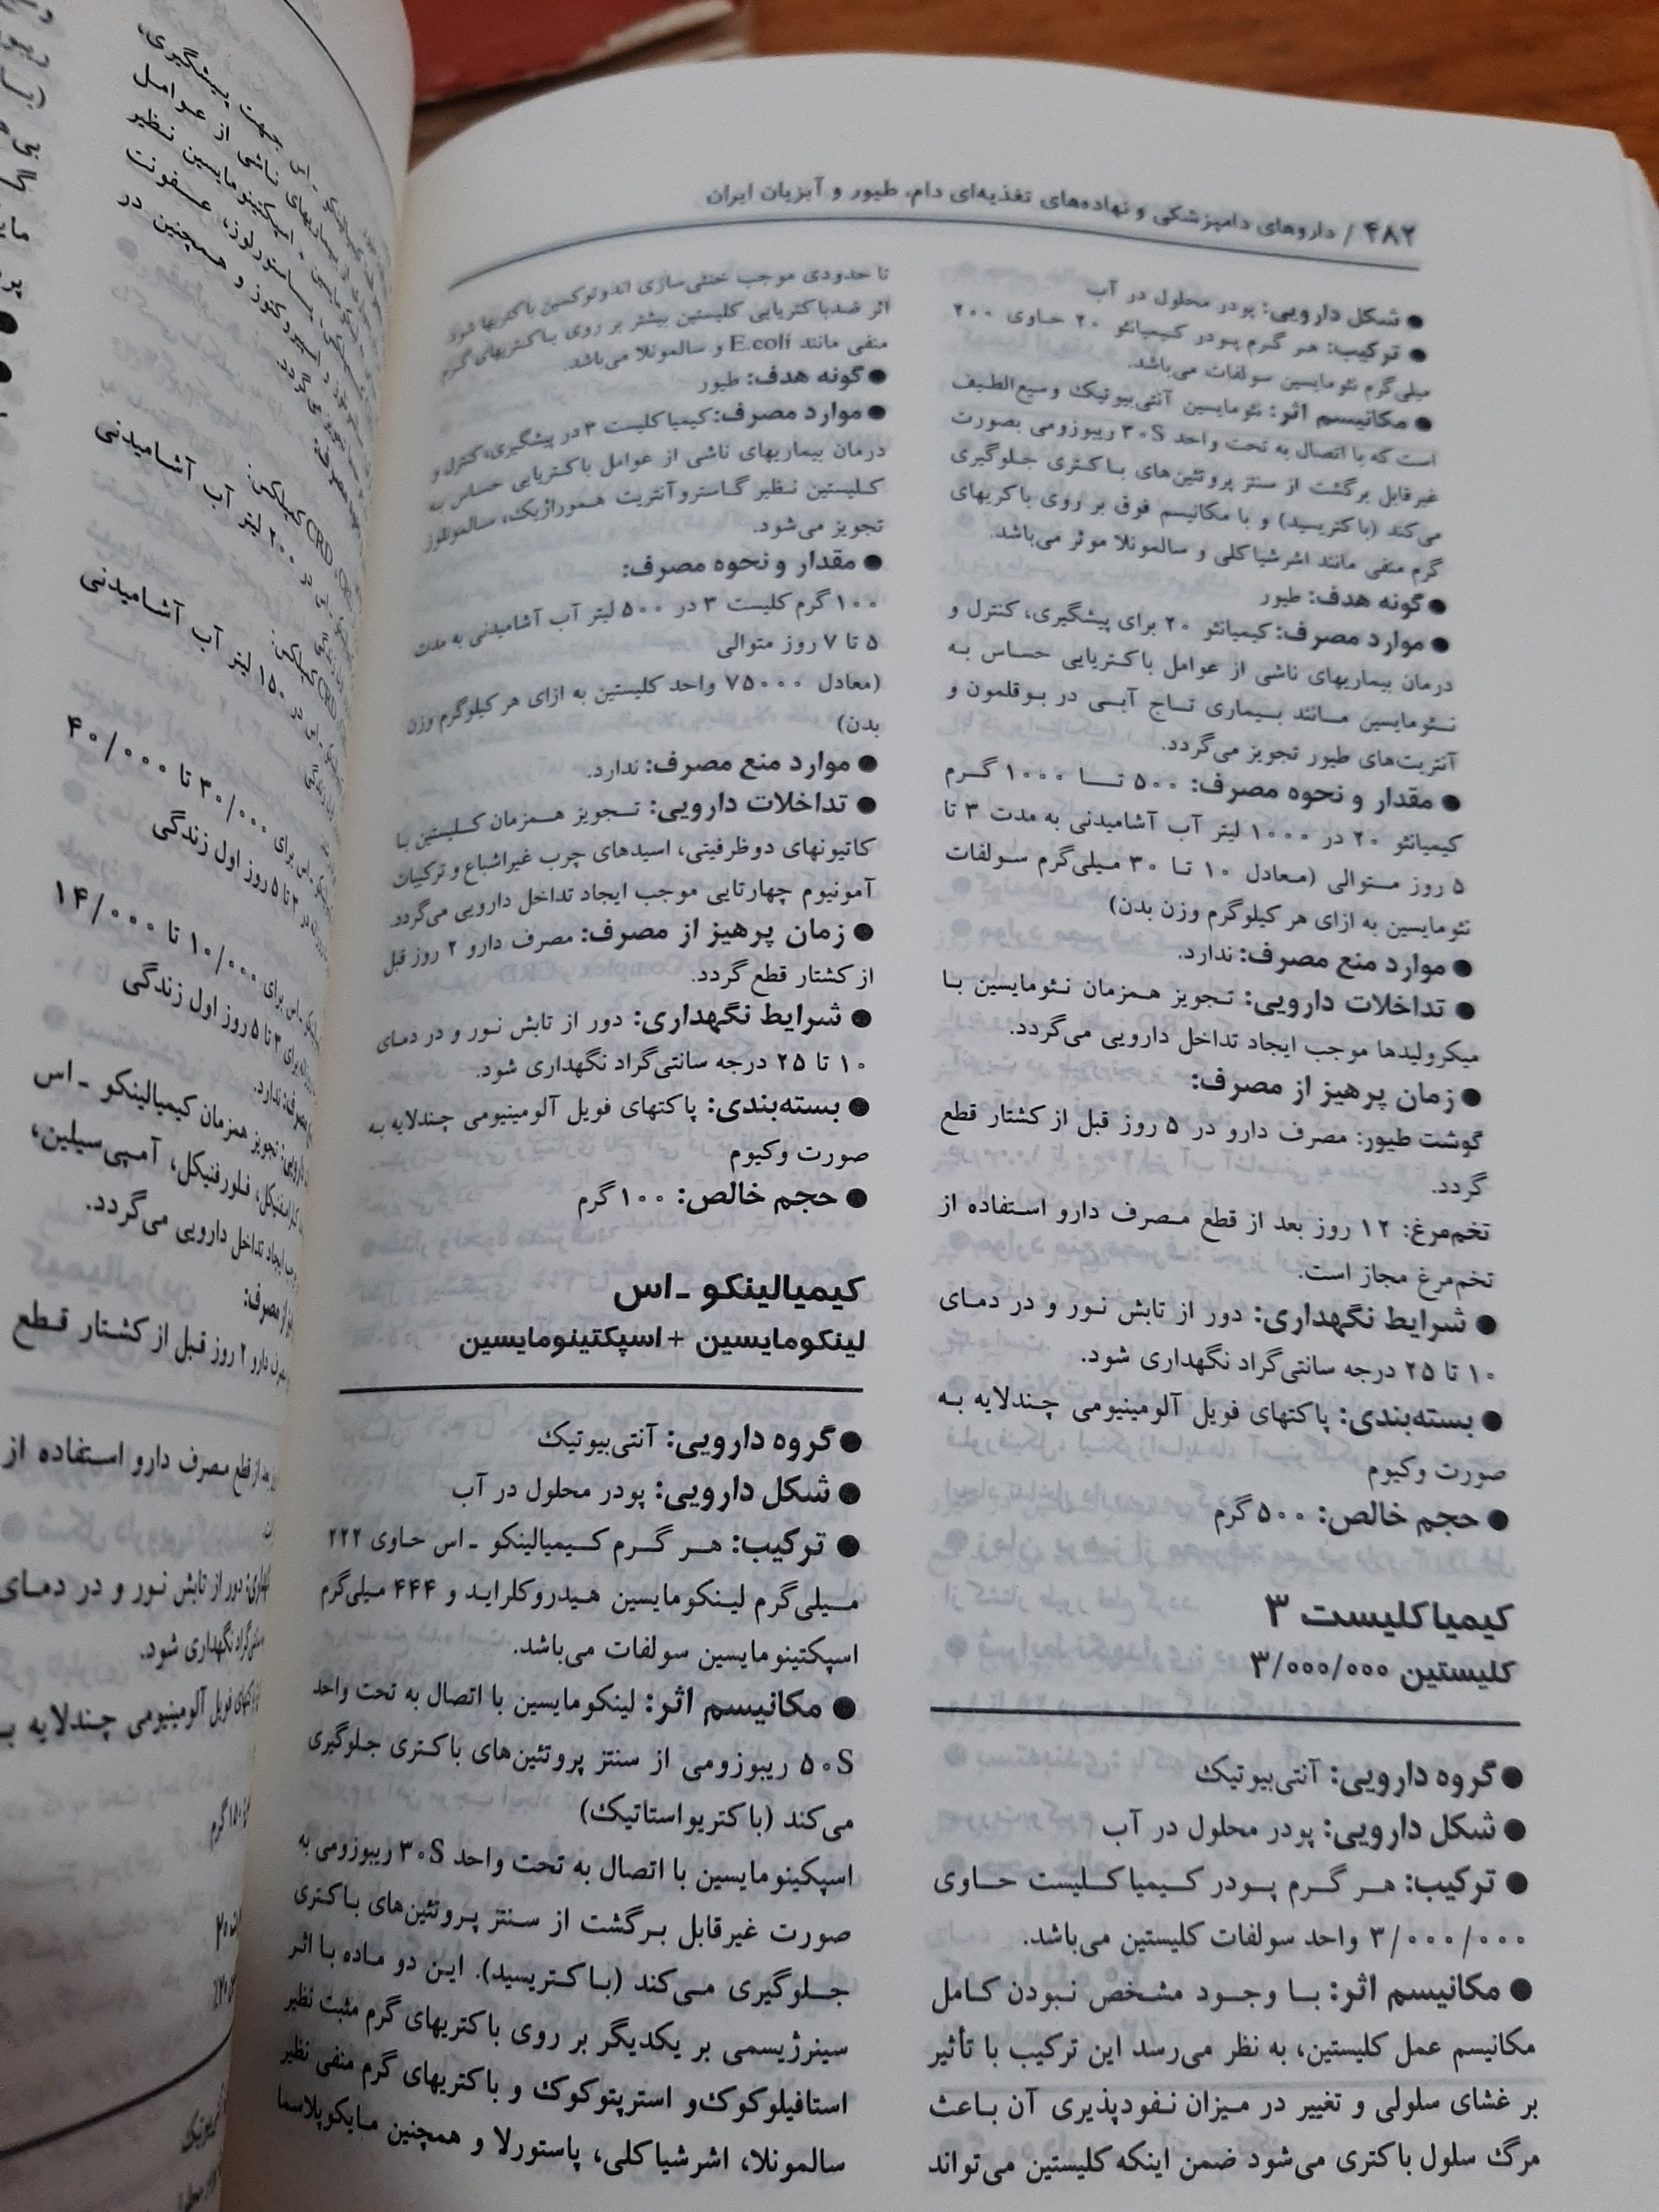 ۴۸۲ / داروهای دامپزشکی و نهاده‌های تغذیه‌ای دام، طیور و آبزیان ایران
● شکل دارویی: پودر محلول در آب
● ترکیب: هر گرم پودر کیمیانئو ۲۰ حاوی ۲۰۰
میلی‌گرم نئومایسین سولفات می‌باشد.
● مکانیسم اثر: نئومایسین آنتی‌بیوتیک وسیع‌الطیف
است که با اتصال به تحت واحد ۳۰S ریبوزومی بصورت
غیرقابل برگشت از سنتز پروتئین‌های باکتری جلوگیری
می‌کند (باکتریسید) و با مکانیسم فوق بر روی باکریهای
گرم منفی مانند اشرشیاکلی و سالمونلا موثر می‌باشد.
● گونه هدف: طیور
● موارد مصرف: کیمیانئو ۲۰ برای پیشگیری، کنترل و
درمان بیماریهای ناشی از عوامل باکتریایی حساس به
نئومایسین مانند بیماری تاج آبی در بوقلمون و
آنتریت‌های طیور تجویز می‌گردد.
● مقدار و نحوه مصرف: ۵۰۰ تا ۱۰۰۰ گرم
کیمیانئو ۲۰ در ۱۰۰۰ لیتر آب آشامیدنی به مدت ۳ تا
۵ روز متوالی (معادل ۱۰ تا ۳۰ میلی‌گرم سولفات
نئومایسین به ازای هر کیلوگرم وزن بدن)
● موارد منع مصرف: ندارد.
● تداخلات دارویی: تجویز همزمان نئومایسین با
میکرولیدها موجب ایجاد تداخل دارویی می‌گردد.
● زمان پرهیز از مصرف:
گوشت طیور: مصرف دارو در ۵ روز قبل از کشتار قطع
گردد.
تخم‌مرغ: ۱۲ روز بعد از قطع مصرف دارو استفاده از
تخم‌مرغ مجاز است.
● شرایط نگهداری: دور از تابش نور و در دمای
۱۰ تا ۲۵ درجه سانتی‌گراد نگهداری شود.
● بسته‌بندی: پاکتهای فویل آلومینیومی چندلایه به
صورت وکیوم
● حجم خالص: ۵۰۰ گرم
کیمیاکلیست ۳
کلیستین ۳/۰۰۰/۰۰۰
● گروه دارویی: آنتی‌بیوتیک
● شکل دارویی: پودر محلول در آب
● ترکیب: هر گرم پودر کیمیاکلیست حاوی
۳/۰۰۰/۰۰۰ واحد سولفات کلیستین می‌باشد.
● مکانیسم اثر: با وجود مشخص نبودن کامل
مکانیسم عمل کلیستین، به نظر می‌رسد این ترکیب با تأثیر
بر غشای سلولی و تغییر در میزان نفودپذیری آن باعث
مرگ سلول باکتری می‌شود ضمن اینکه کلیستین می‌تواند
تا حدودی موجب خنثی‌سازی اندوتوکسین باکتریها شود.
اثر ضدباکتریایی کلیستین بیشتر بر روی باکتریهای گرم
منفی مانند E.coli و سالمونلا می‌باشد.
● گونه هدف: طیور
● موارد مصرف: کیمیاکلیست ۳ در پیشگیری، کنترل و
درمان بیماریهای ناشی از عوامل باکتریایی حساس به
کلیستین نظیر گاستروآنتریت هموراژیک، سالمونلوز
تجویز می‌شود.
● مقدار و نحوه مصرف:
۱۰۰ گرم کلیست ۳ در ۵۰۰ لیتر آب آشامیدنی به مدت
۵ تا ۷ روز متوالی
(معادل ۷۵۰۰۰ واحد کلیستین به ازای هر کیلوگرم وزن
بدن)
● موارد منع مصرف: ندارد.
● تداخلات دارویی: تجویز همزمان کلیستین با
کاتیونهای دوظرفیتی، اسیدهای چرب غیراشباع و ترکیبات
آمونیوم چهارتایی موجب ایجاد تداخل دارویی می‌گردد.
● زمان پرهیز از مصرف: مصرف دارو ۲ روز قبل
از کشتار قطع گردد.
● شرایط نگهداری: دور از تابش نور و در دمای
۱۰ تا ۲۵ درجه سانتی‌گراد نگهداری شود.
● بسته‌بندی: پاکتهای فویل آلومینیومی چندلایه به
صورت وکیوم
● حجم خالص: ۱۰۰ گرم
کیمیالینکو -اس
لینکومایسین + اسپکتینومایسین
● گروه دارویی: آنتی‌بیوتیک
● شکل دارویی: پودر محلول در آب
● ترکیب: هر گرم کیمیالینکو -اس حاوی ۲۲۲
میلی‌گرم لینکومایسین هیدروکلراید و ۴۴۴ میلی‌گرم
اسپکتینومایسین سولفات می‌باشد.
● مکانیسم اثر: لینکومایسین با اتصال به تحت واحد
۵۰S ریبوزومی از سنتز پروتئین‌های باکتری جلوگیری
می‌کند (باکتریواستاتیک)
اسپکینومایسین با اتصال به تحت واحد ۳۰S ریبوزومی به
صورت غیرقابل برگشت از سنتز پروتئین‌های باکتری
جلوگیری می‌کند (باکتریسید). این دو ماده با اثر
سینرژیسمی بر یکدیگر بر روی باکتریهای گرم مثبت نظیر
استافیلوکوک و استرپتوکوک و باکتریهای گرم منفی نظیر
سالمونلا، اشرشیاکلی، پاستورلا و همچنین مایکوپلاسما
جهت پیشگیری،
ناشی از عوامل
اسپکتینومایسین نظیر
پاستورلوز، عفونت
و همچنین در
۲۰۰ لیتر آب آشامیدنی
۱۵۰ لیتر آب آشامیدنی
برای ۳۰/۰۰۰ تا ۴۰/۰۰۰
۳ تا ۵ روز اول زندگی
برای ۱۰/۰۰۰ تا ۱۴/۰۰۰
۳ تا ۵ روز اول زندگی
مصرف: ندارد.
تجویز همزمان کیمیالینکو -اس
فلورفنیکل، آمپی‌سیلین،
ایجاد تداخل دارویی می‌گردد.
از مصرف:
دارو ۲ روز قبل از کشتار قطع
بعد از قطع مصرف دارو استفاده از
دور از تابش نور و در دمای
نگهداری شود.
فویل آلومینیومی چندلایه